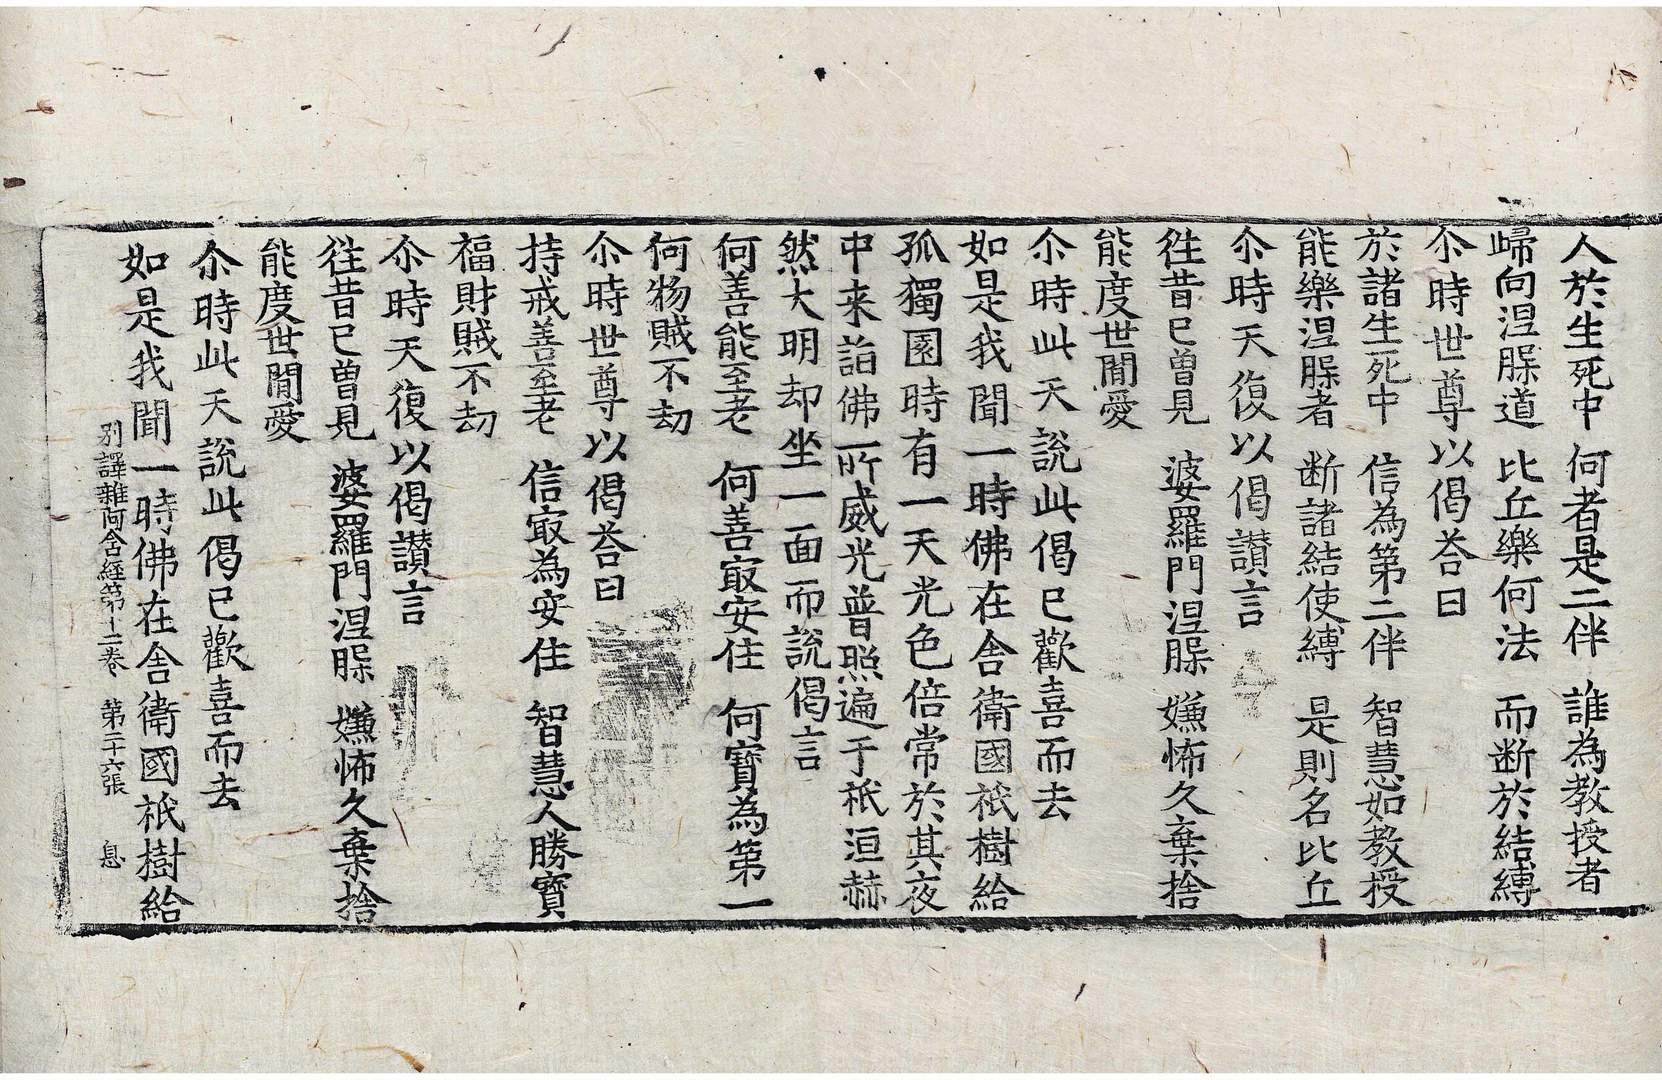 人於生死中 何者是二伴 誰為教授者
歸向涅槃道 比丘樂何法 而断於結縛
尒時世尊以偈荅曰
於諸生死中 信為第二伴 智慧如教授
能樂涅槃者 断諸結使縛 是則名比丘
尒時天復以偈讃言
徃昔已曾見 婆羅門涅槃 嫌怖久棄捨
能度世間愛
尒時此天說此偈已歡喜而去
如是我聞一時佛在舎衛國祇樹給
孤獨園時有一天光色倍常於其夜
中来詣佛所威光普照遍于祇洹赫
然大明却坐一面而說偈言
何善能至老 何善㝡安住 何寶為第一
何物賊不劫
尒時世尊以偈荅曰
持戒善至老 信㝡為安住 智慧人勝寶
福財賊不劫
尒時天復以偈讃言
徃昔已曾見 婆羅門涅槃 嫌怖久棄捨
能度世間愛
尒時此天說此偈已歡喜而去
如是我聞一時佛在舎衛國祇樹給
別譯雜阿含經第十二卷 第二十六張 息